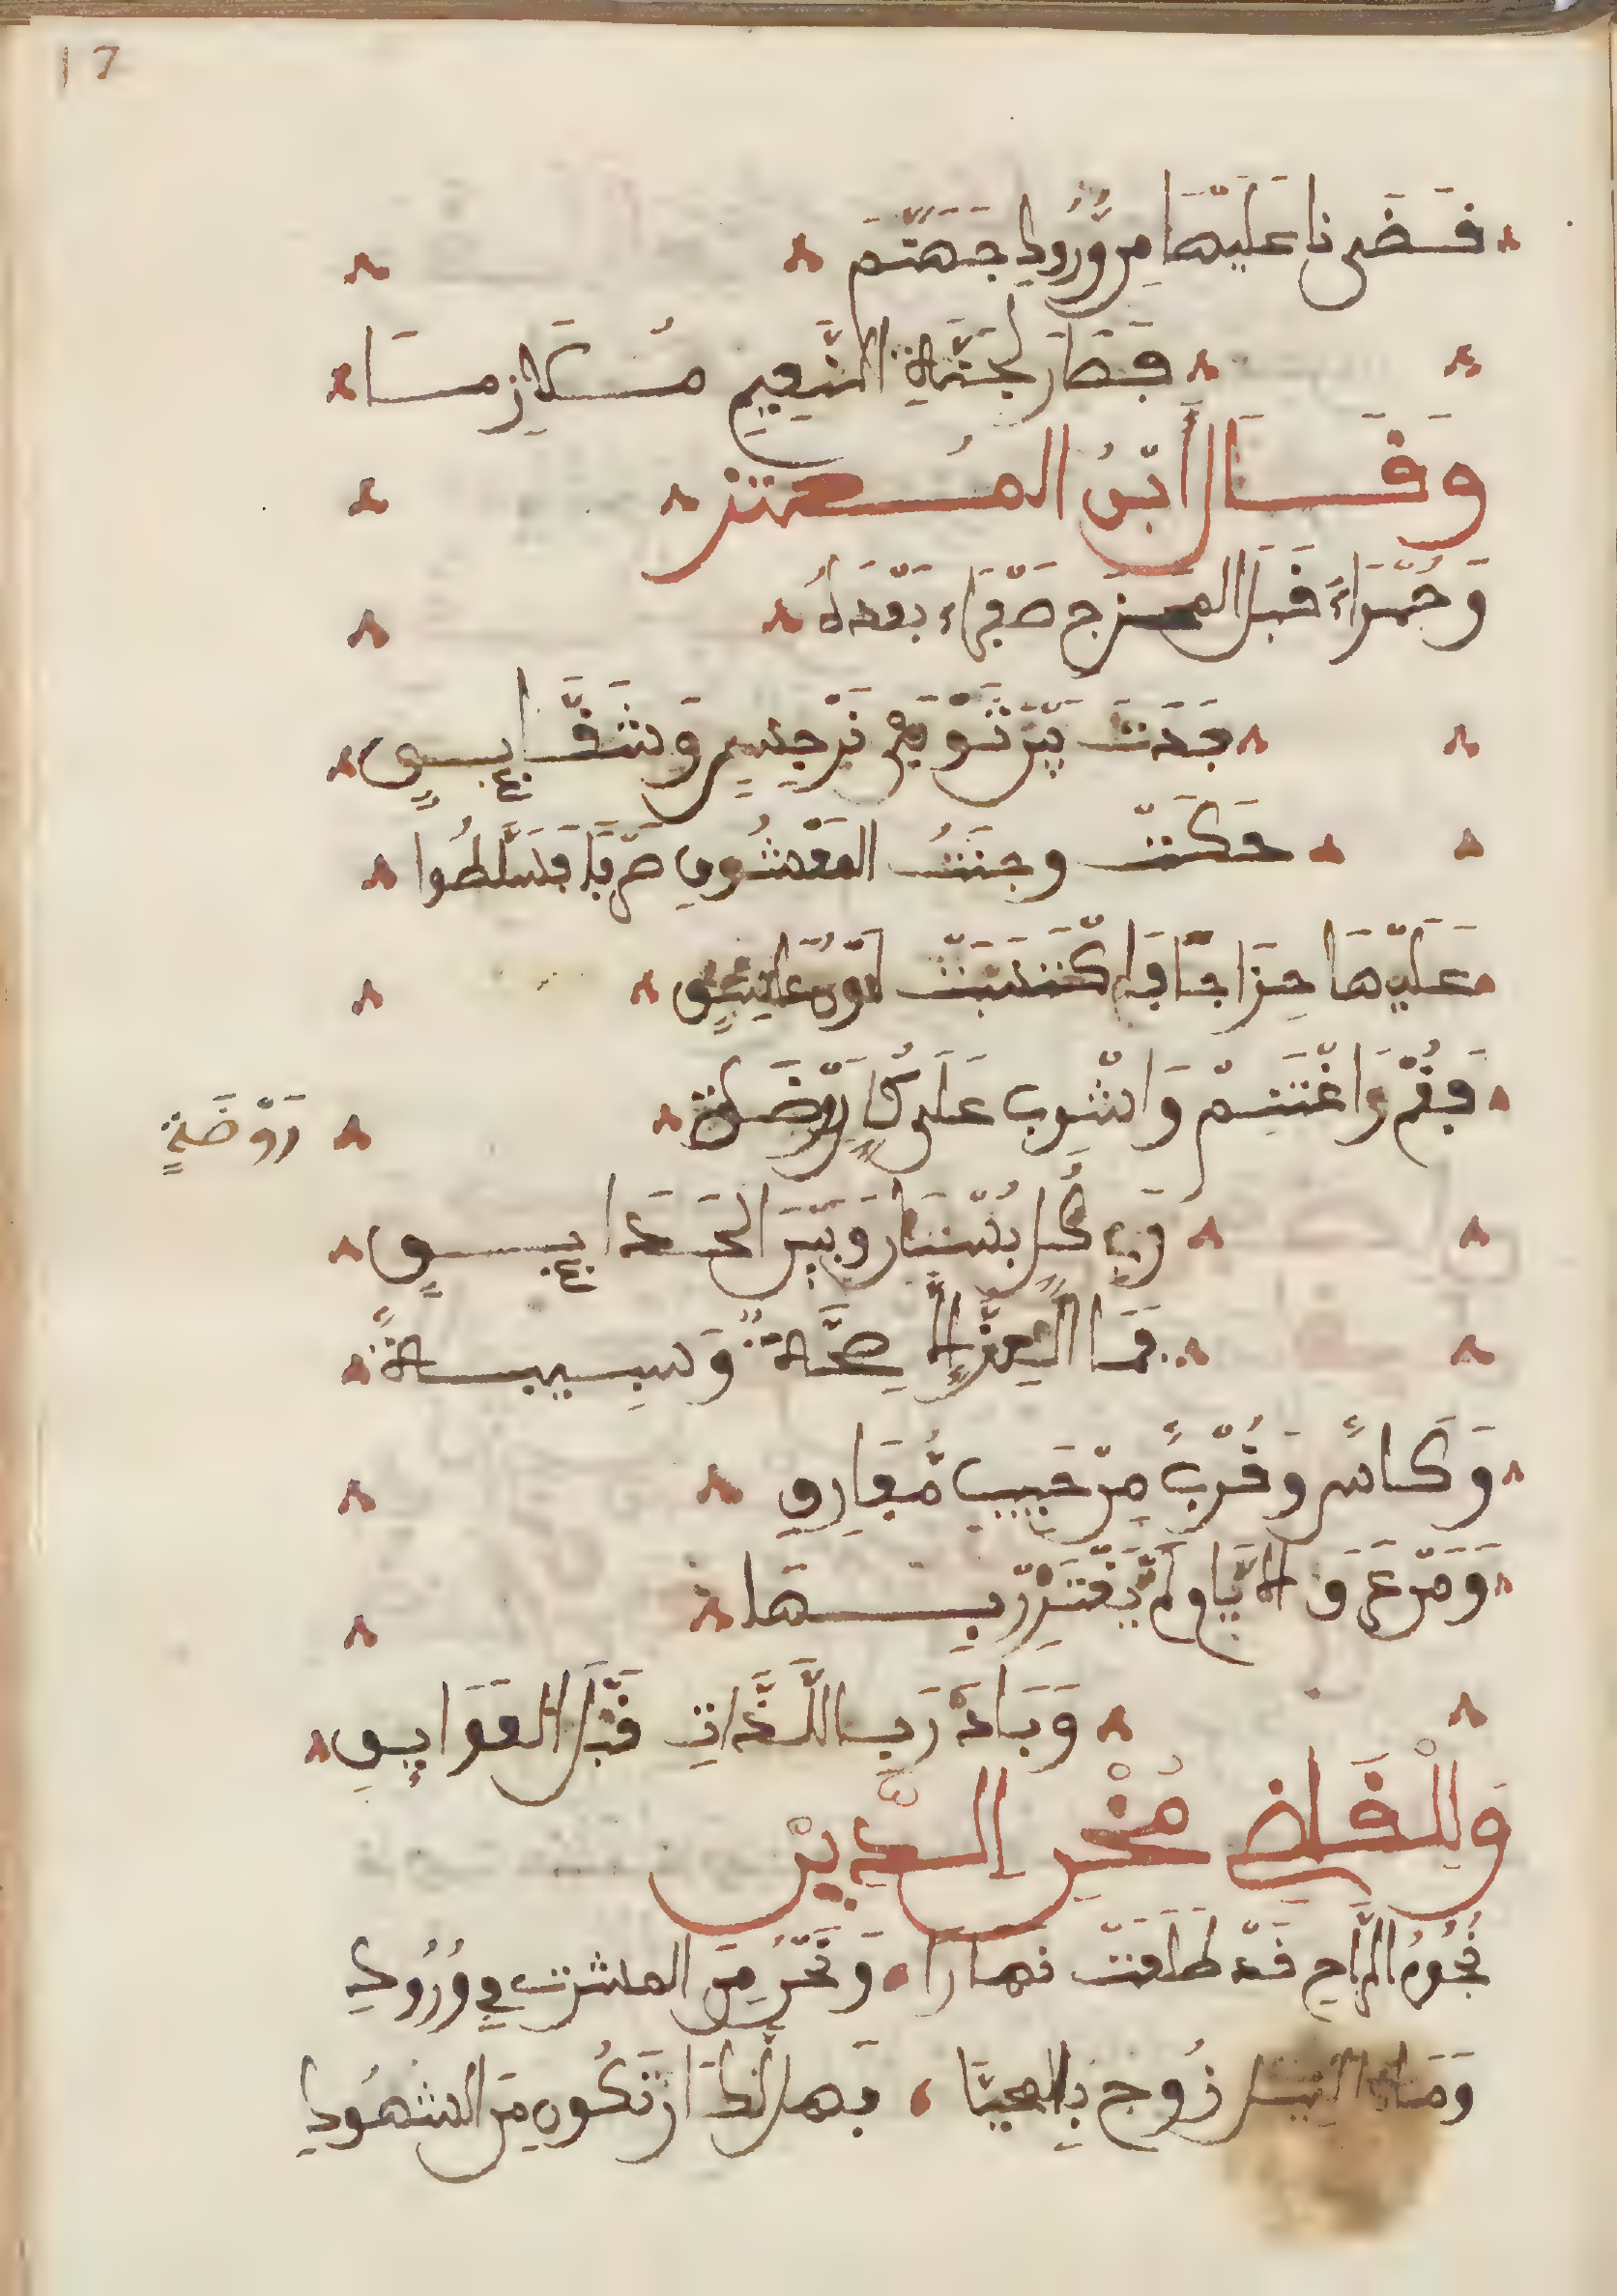 17
فَضَى نا عَلَيْهَا مِن وُرُودِ جَهَنَّمَ
فَصَارَ لِجَنَّةِ النَّعِيمِ مُسَلَازِمَا
وَقَالَ أَبْنُ المُعْتز
وَحُمْرَاءُ قَبْلَ المزج صَفْرَاءُ بَعْدَهُ
بَدَتْ بَيْنَ ثَوْبَيْ نَرْجِسٍ وَشَقَائِقٍ
حَكَتْ وجنَتُ المَعْشُوقِ صِرْفًا فَسَلَّطُوا
عَلَيْهَا مِزَاجًا فَاكْتَسَبَتْ لَوْنَ عَاشِقٍ
فَقُمْ وَاغْتَنِمْ وَاشْرَب عَلَى كُلِّ رَوْضَةٍ
رَوْضَةٍ
وَفِي كُلِّ بُسْتَانٍ وَبَيْنَ الحَدَائِقِ
فَمَا العِزُّ إِلَّا صِحَّةٌ وَشَبِيبَةٌ
وَكَأْسٌ وَقُرْبٌ مِنْ حَبِيبٍ مُّفَارِقِ
وَمَنْ عَرَفَ الأيَّامَ لَمْ يَغْتَرِرْ بِهَا
وَبَادَرَ بِاللَّذَّاتِ قَبْلَ العَوَائِقِ
وَلِلْقَاضِي مُحْيِ الدِّينْ
نُجُومُ الرَّاحِ قَدْ طَافَتْ نهارًا وَنَحْنُ مِنَ المشرب فِي وُرُودِ
وَمَاءُ زُوجَ بِالحميَّا فَهَل لَكَ أَن تَكُونَ مِنَ الشهُودِ